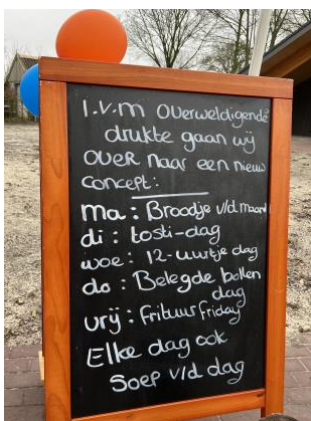 I.v.m overweldigende
drukte gaan wij
over naar een nieuw
concept:
Ma: Broodje v/d maand
di: tosti-dag
woe: 12-uurtje dag
do: Belegde bollen
dag
vrij: Frituur Friday
Elke dag ook
Soep v/d dag